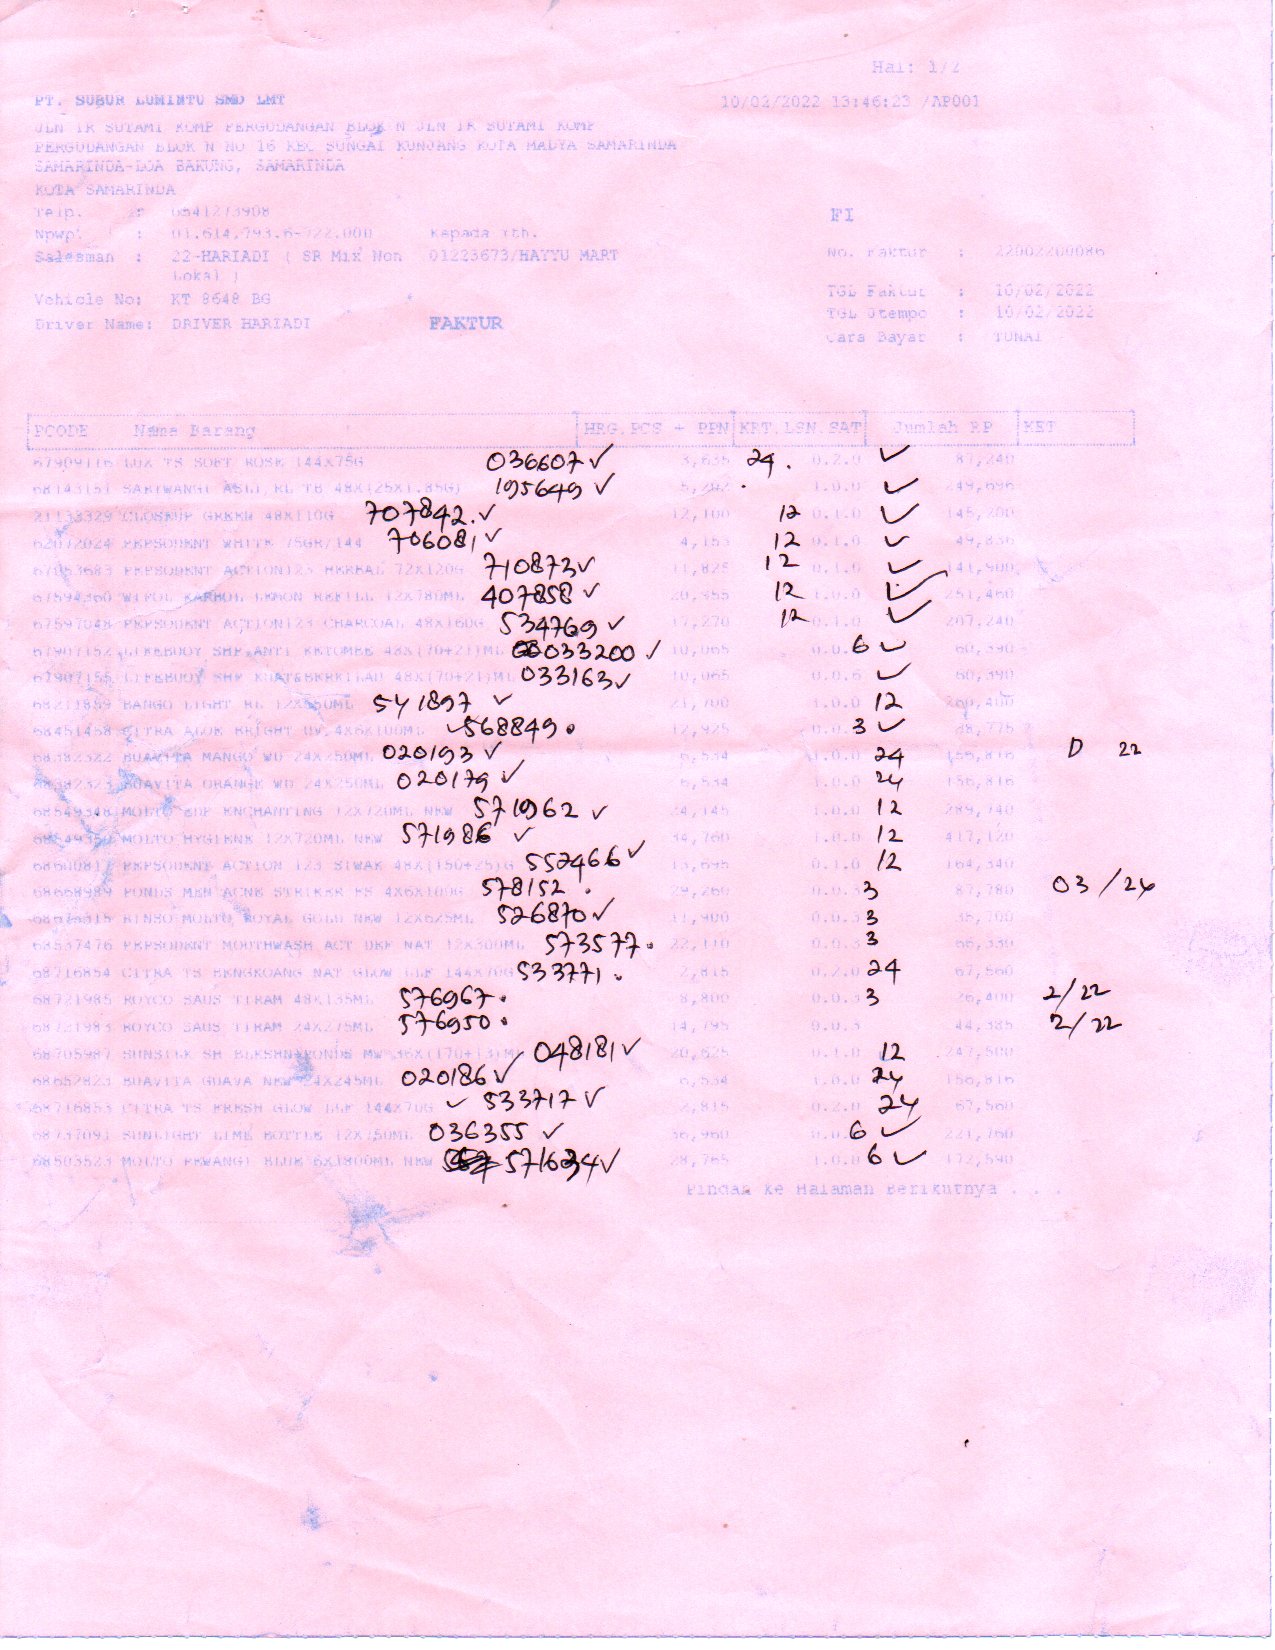 Hal: 1/2
PT. SUBUR LUMINTU SMD LMT 10/02/2022 13:46:23 /AP001
JLN IR SUTAMI KOMP PERGUDANGAN BLOK N JLN IR SUTAMI KOMP
PERGUDANGAN BLOK N NO 16 KEC SUNGAI KUNJANG KOTA MADYA SAMARINDA
SAMARINDA-LOA BAKUNG, SAMARINDA
KOTA SAMARINDA
Telp. : 0541273908 FI
Npwp : 01.614.793.6-722.000 Kepada Yth.
Salesman : 22-HARIADI ( SR Mix Non 01223673/HAYYU MART No. Faktur : 22002200086
Lokal )
Vehicle No: KT 8648 BG TGL Faktur : 10/02/2022
Driver Name: DRIVER HARIADI FAKTUR TGL Jtempo : 10/02/2022
Cara Bayar : TUNAI
PCODE Nama Barang HRG.PCS + PPN KRT.LSN.SAT Jumlah RP KET
67909116 LUX TS SOFT ROSE 144X75G 036607 ✓ 3,635 24. 0.2.0 ✓ 87,240
68143151 SARIWANGI ASLI RL TB 48X(25X1.85G) 195649 ✓ 5,202 1.0.0 ✓ 249,696
21133329 CLOSEUP GREEN 48X110G 707842. ✓ 12,100 12 0.1.0 ✓ 145,200
62072024 PEPSODENT WHITE 75GR/144 706081 ✓ 4,153 12 0.1.0 ✓ 49,836
67053683 PEPSODENT ACTION123 HERBAL 72X120G 710873 ✓ 11,825 12 0.1.0 ✓ 141,900
67594360 WIPOL KARBOL LEMON REFILL 12X780ML 407858 ✓ 20,955 12 1.0.0 ✓ 251,460
67597048 PEPSODENT ACTION123 CHARCOAL 48X160G 534769 ✓ 17,270 12 0.1.0 ✓ 207,240
67907152 LIFEBUOY SHP ANTI KETOMBE 48X(70+21)ML 033200 ✓ 10,065 0.0.6 6 ✓ 60,390
67907155 LIFEBUOY SHP KUAT&BERKILAU 48X(70+21)ML 033163 ✓ 10,065 0.0.6 ✓ 60,390
68211889 BANGO LIGHT RL 12X550ML 541897 ✓ 21,700 1.0.0 12 260,400
68451458 CITRA ALOE BRIGHT UV 4X6X100ML ✓ 568849. 12,925 0.0.3 3 ✓ 38,775
68382322 BUAVITA MANGO WD 24X250ML 020193 ✓ 6,534 1.0.0 24 156,816 D 22
68382323 BUAVITA ORANGE WD 24X250ML 020179 ✓ 6,534 1.0.0 24 156,816
68549348 MOLTO EDP ENCHANTING 12X720ML NEW 571962 ✓ 24,145 1.0.0 12 289,740
MOLTO HYGIENE 12X720ML NEW 571986 ✓ 34,760 1.0.0 12 417,120
PEPSODENT ACTION 123 SIWAK 48X(150+25)G 552466 ✓ 13,695 0.1.0 12 164,340
68668989 PONDS MEN ACNE STRIKER FS 4X6X100G 578152 . 29,260 0.0.3 3 87,780 03 /24
RINSO MOLTO ROYAL GOLD NEW 526870 ✓ 11,900 0.0.3 3 35,700
68537476 PEPSODENT MOUTHWASH ACT DEF NAT 12X300ML 573577. 22,110 0.0.3 3 66,330
68716854 CITRA TS BENGKOANG NAT GLOW LLF 144X70G 533771 . 2,815 0.2.0 24 67,560
68721985 ROYCO SAUS TIRAM 48X135ML 576967. 8,800 0.0.3 3 26,400 2/22
68721983 ROYCO SAUS TIRAM 24X275ML 576950 . 14,795 0.0.3 44,385 2/22
68705987 SUNSILK SH MW 36X(170+13)ML 048181 ✓ 20,625 0.1.0 12 247,500
68657823 BUAVITA GUAVA NEW 24X245ML 020186 ✓ 6,534 1.0.0 24 156,816
68716853 CITRA TS FRESH GLOW LLF 144X70G ✓ 533717 ✓ 2,815 0.2.0 24 67,560
68737091 SUNLIGHT LIME BOTTLE 12X750ML 036355 ✓ 36,960 0.0.6 6 ✓ 221,760
68503523 MOLTO PEWANGI BLUE 6X1800ML NEW 571634 ✓ 28,765 1.0.0 6 ✓ 172,590
Pindah Ke Halaman Berikutnya . . .